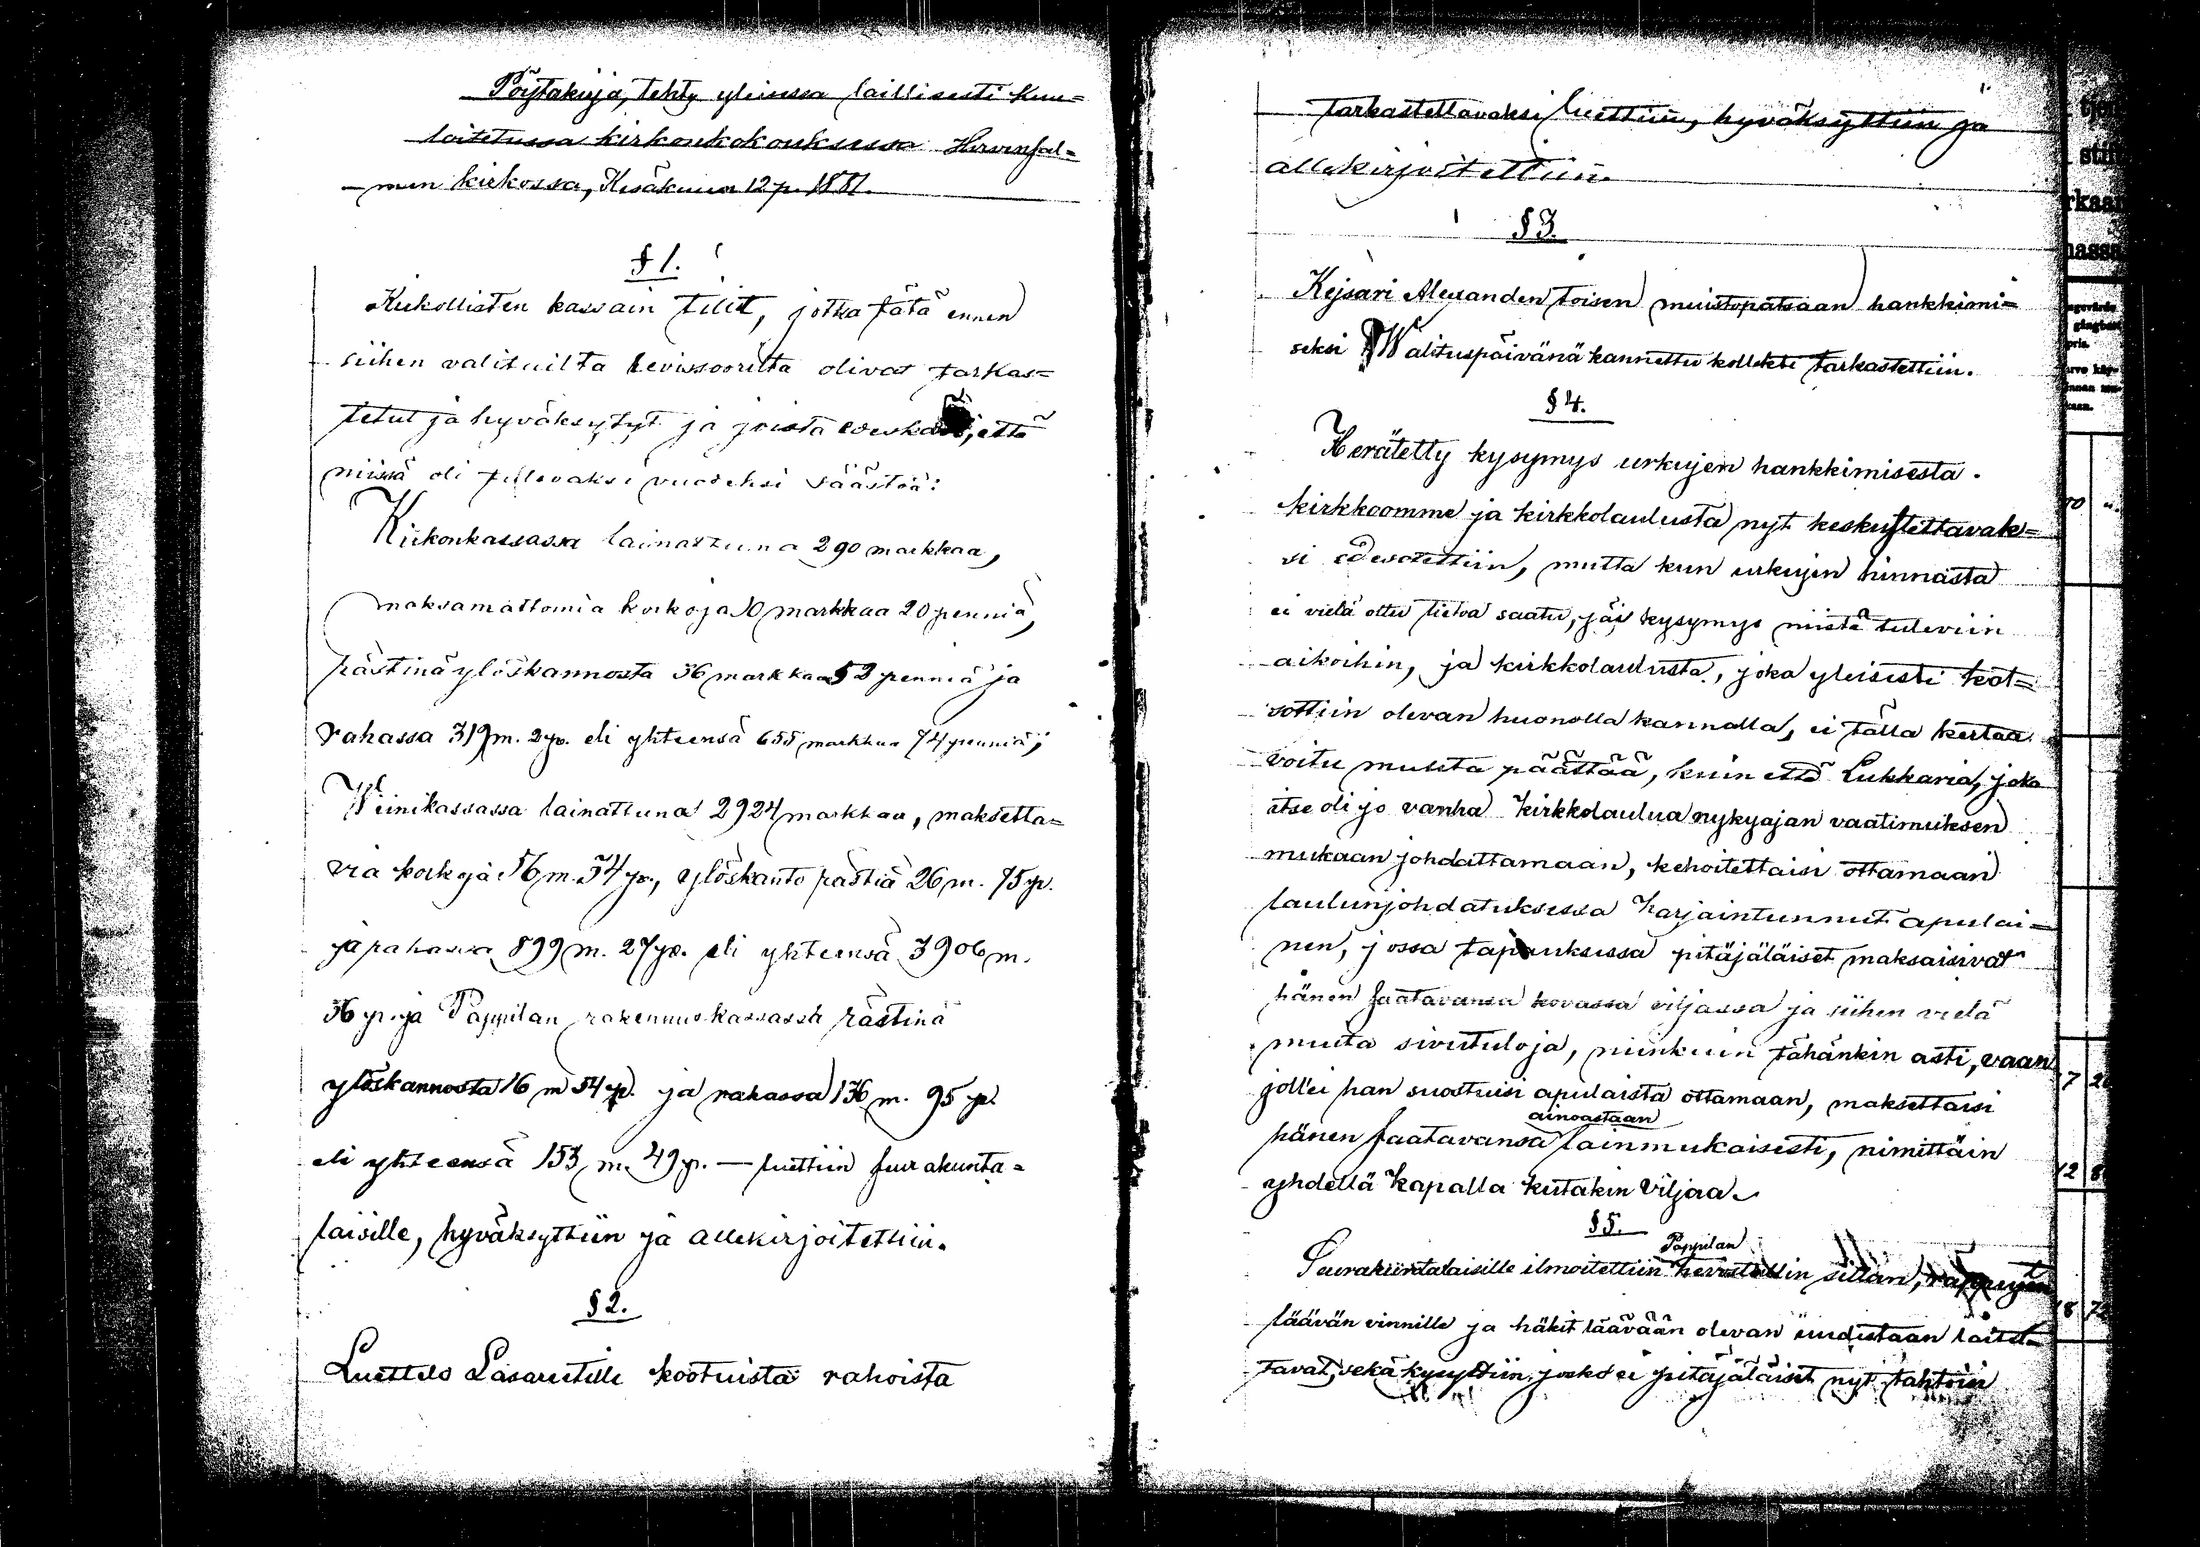 Pöytäkirja, tehty yleisessä laillisesti kuu=
loitetussa kirkonkokouksessa Hirvensal=
men kirkossa, Kesäkuun 12 p. 1881.
§ 1.
Kirkollisten kassain tilit, jotka tätä ennen
siihen valituilta revissoorilta olivat tarkas=
tetut ja hyväksytyt ja joista että
niissä oli tulevaksi vuodeksi säästöä:
Kirkonkassassa lainattuna 290 markkaa,
maksamattomia korkoja 10 markkaa 20 penniä,
rästinä ylöskannosta 36 markkaa 52 penniä ja
rahassa 319 m. 2 p. eli yhteensä 655 markkaa 74 penniä;
Wiinikassassa lainattuna 2924 markkaa, maksetta=
via korkoja 56 m. 34 p., ylöskanto rästiä 26 m. 75 p.
ja rahassa 899 m. 27 p. eli yhteensä 3906 m.
36 p. ja Pappilan rakennuskassassa rästinä
ylöskannosta 16 m 54 p. ja rahassa 136 m. 95 p.
eli yhteensä 153 m. 49 p. — luettiin seurakunta=
laisille, hyväksyttiin ja allekirjoitettiin.
§ 2.
Luettelo Lasaretille kootuista rahoista
tarkastettavaksi luettiin, hyväksyttiin ja
allekirjoitettiin.
§ 3.
Kejsari Alexanden toisen muistopatsaan hankkimi=
seksi Walituspäivänä kannettu kollekti tarkastettiin.
§ 4.
Herätetty kysymys urkujen hankkimisesta
kirkkoomme ja kirkkolaulusta nyt keskusteltavak=
si edesotettiin, mutta kun urkujen hinnasta
ei vielä oltu tietoa saatu, jäi kysymys niistä tuleviin
aikoihin, ja kirkkolaulusta, joka yleisesti kat=
sottiin olevan huonolla kannalla, ei tällä kertaa
voitu muuta päättää, kuin että Lukkaria, joka
itse oli jo vanha kirkkolaulua nykyajan vaatimuksen
mukaan johdattamaan, kehoitettaisi ottamaan
laulunjohdatuksessa harjaintunnut apulai=
nen, jossa tapauksessa pitäjäläiset maksaisivat
hänen saatavansa kovassa viljassa ja siihen vielä
muita sivutuloja, niinkuin tähänkin asti, vaan
jollei hän suostuisi apulaista ottamaan, maksettaisi
ainoastaan
hänen saatavansa lainmukaisesti, nimittäin
yhdellä kapalla kutakin viljaa.
§ 5.
Pappilan
Seurakuntalaisille ilmoitettiin sillan,
läävän vinnille ja häkit läävään olevan uudestaan laitet=
tavat, sekä kysyttiin josko ei pitäjäläiset nyt tahtoisi